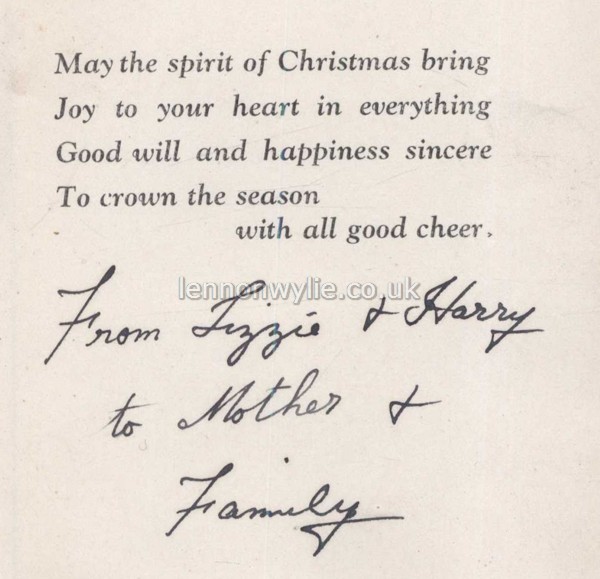 May the spirit of Christmas bring
Joy to your heart in everything
Good will and happiness sincere
To crown the season
with all good cheer.
lennonwylie.co.uk
From Lizzie & Harry
to Mother &
Family